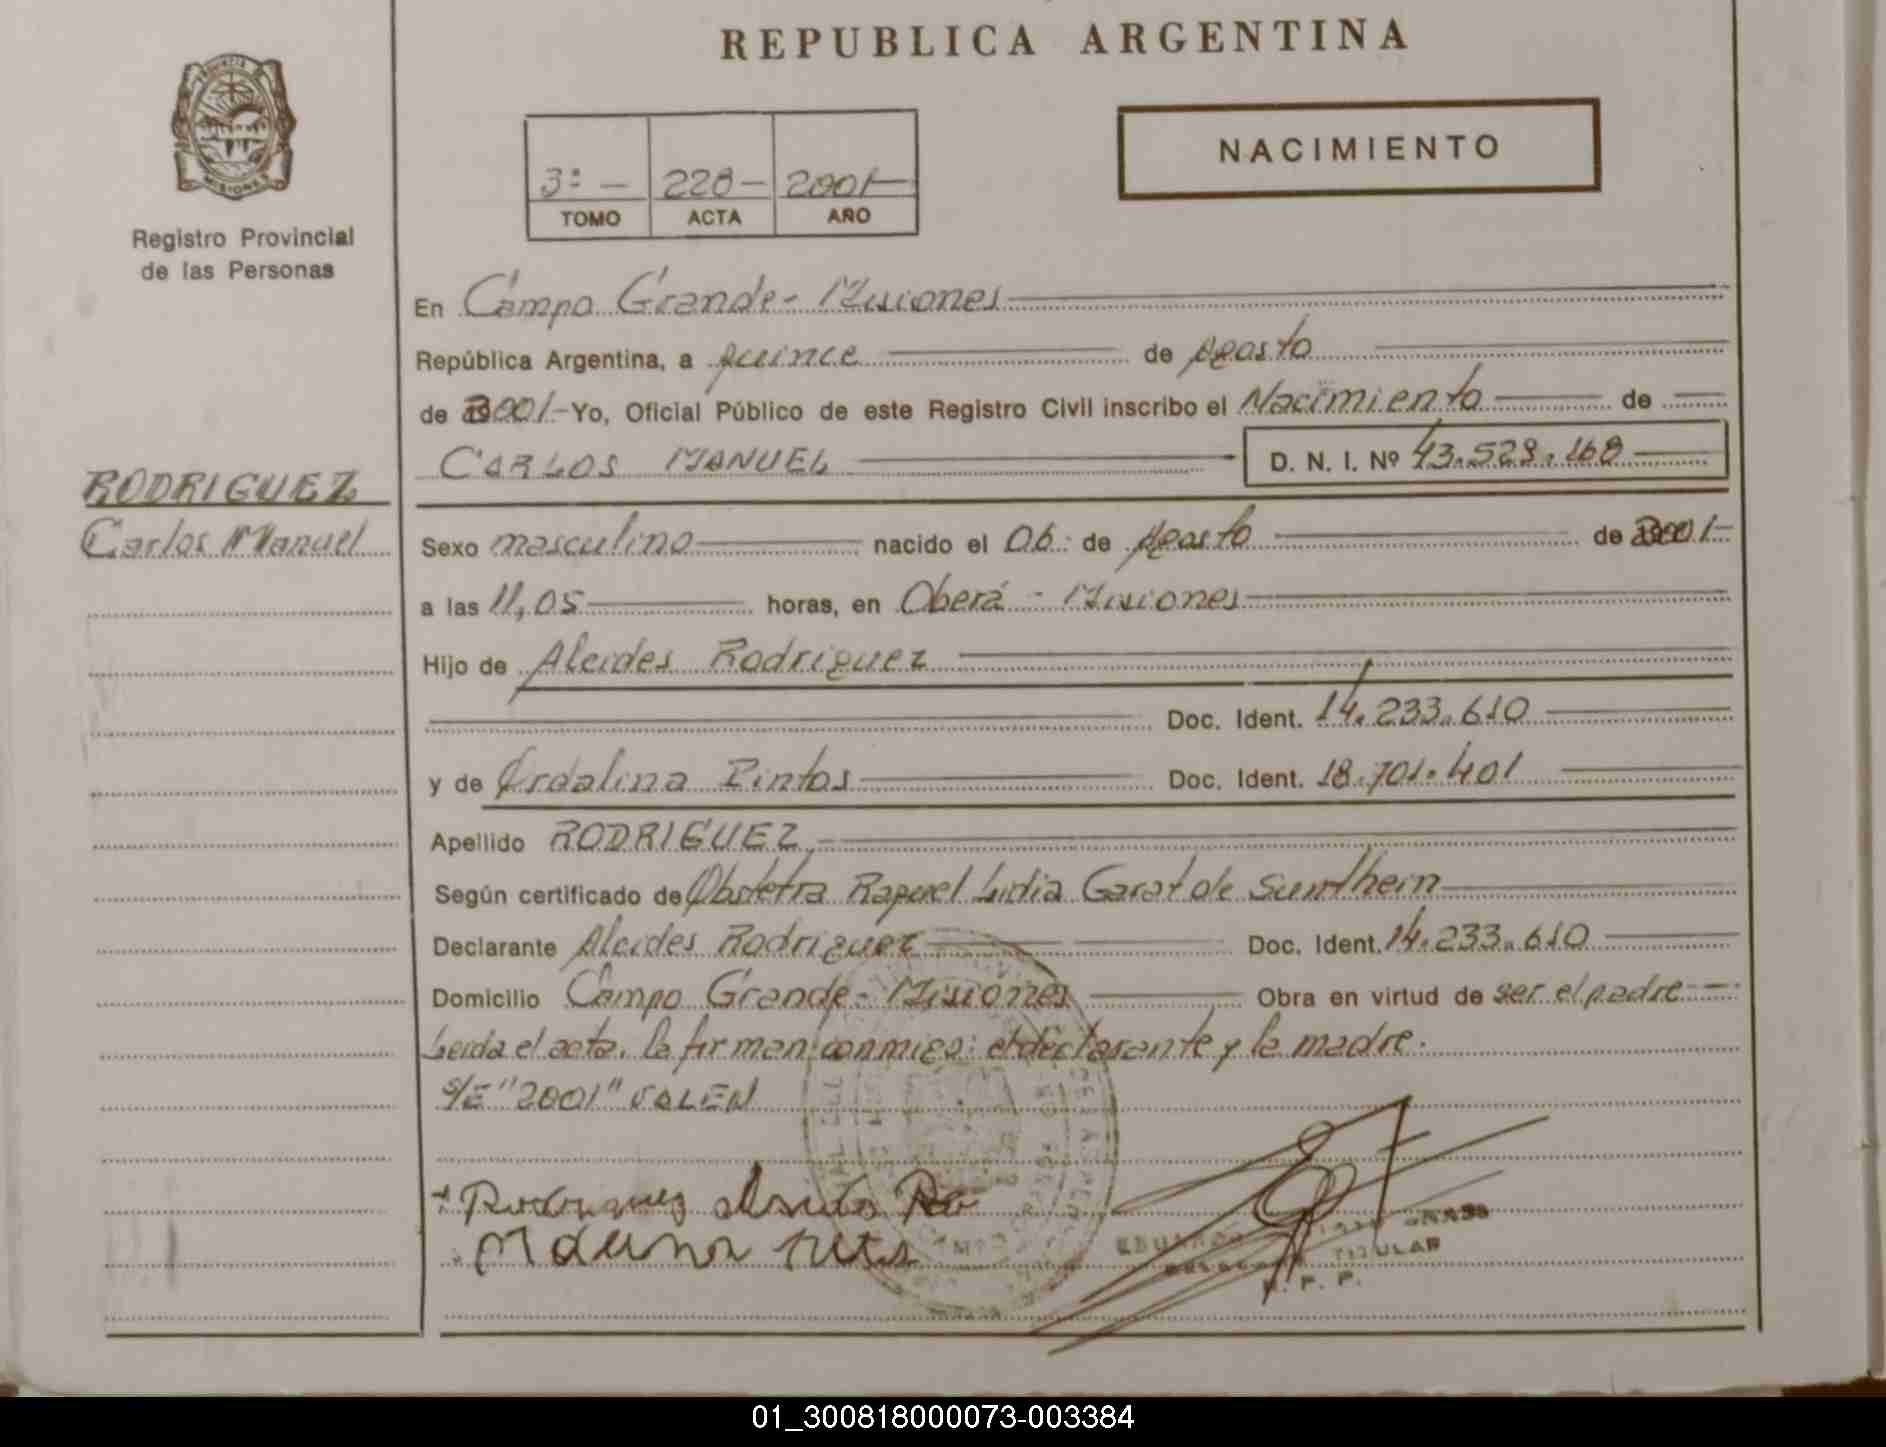 REPUBLICA ARGENTINA
PROVINCIA DE
MISIONES
Registro Provincial
de las Personas
3º - 228- 2001-
TOMO ACTA AÑO
NACIMIENTO
En Campo Grande- Misiones
República Argentina, a quince de Agosto
de 2001- Yo, Oficial Público de este Registro Civil inscribo el Nacimiento de
CARLOS MANUEL D. N. I. Nº 43.528.168
RODRIGUEZ
Carlos Manuel
Sexo masculino nacido el 06 de Agosto de 2001-
a las 11,05 horas, en Oberá - Misiones
Hijo de Alcides Rodriguez
Doc. Ident. 14.233.610
y de Pintos Doc. Ident. 18.701.401
Apellido RODRIGUEZ
Según certificado de Obstetra Raquel Lidia Garat de
Declarante Alcides Rodriguez Doc. Ident. 14.233.610
Domicilio Campo Grande- Misiones Obra en virtud de ser el padre
Leida el acta, la firman conmigo: el declarante y la madre.
S/E "2001" VALEN
Rodriguez
EDUARDO
TITULAR
R. P. P.
01_300818000073-003384